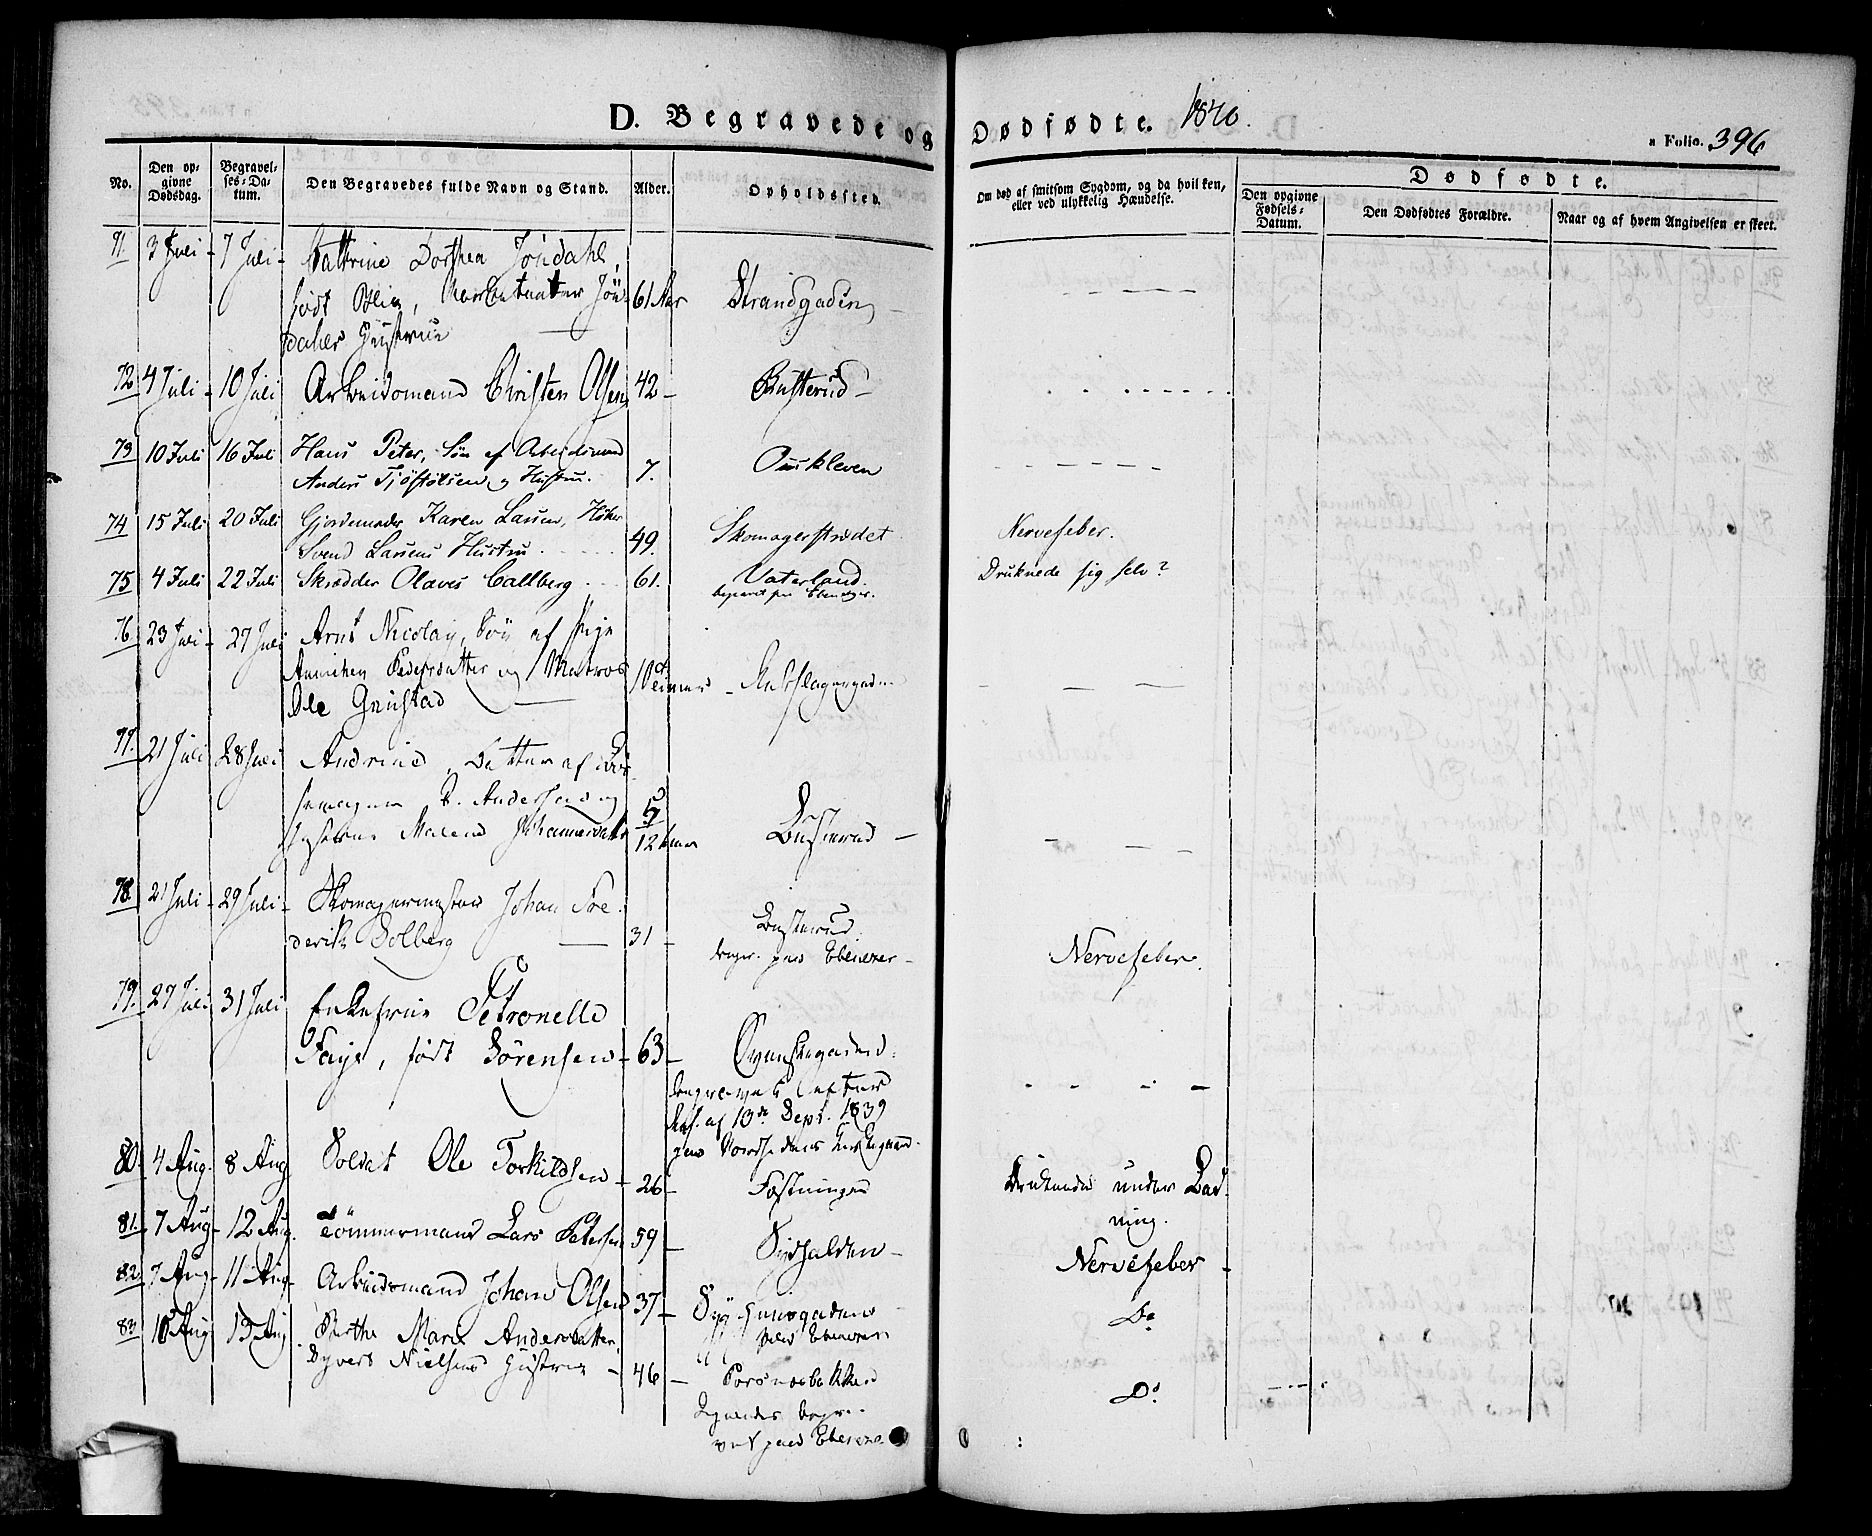 D. Begravede og Dødfødte. 1840.
a Folio. 396
No.
Den op-
givne
Dødsdag.
Begravel-
ses-Da-
tum.
Den Begravedes fulde Navn og Stand.
Alder.
Opholdssted.
Om død af smitsom Sygdom, og da hvilken,
eller ved ulykkelig Hændelse.
Dødfødte.
Den opgivne
Fødsels-
Datum.
Den Dødfødtes Forældre.
Naar og af hvem Angivelsen er skeet.
71. 3 Juli - 7 Juli - Cathrine Dorthea Jöndahl,
født 61 Aar Strandgaden
72 4 Juli - 10 Juli Arbeidsmand Christen Olsen 42 - Busterud -
73 10 Juli 16 Juli Hans Peter, Søn af Arbeidsmand
Anders Tjøstølsen og Hustru. 7. Ouskleven
74 15 Juli 20 Juli Gjordemoder Karen Larsen, Høker
Svend Larsens Hustru. 49. Skomagerstrædet Nervefeber.
75 4 Juli 22 Juli Skrædder Olaves Callberg 61. Vaterland. Druknede sig selv?
76 23 Juli - 27 Juli Arnt Nicolay, Søn af Pige
Annichen Pedersdatter og Matros
Ole Grimstad
77. 21 Juli 28 Juli Andrine, Datter af
P. Andersen og
Hustrue Malene Johannesdatter Busterud -
78. 21 Juli - 29 Juli - Skomagermester Johan Fre-
derik Solberg 31 - Busterud.
paa Ebenezer - Nervefeber.
79. 27 Juli 31 Juli Enkefrue Petronelle
Faye, født Sörensen - 63 -
begraves efter
Res. af 10de Sept. 1839
paa
80. 4 Aug. 8 Aug Soldat Ole Torkildsen - 26 - Fæstningen Druknede under Bad-
ning.
81. 7 Aug - 12 Aug. Tömmermand Lars Petersen 59 - Sydhalden - Nervefeber -
82 7 Aug - 11 Aug - Arbeidsmand Johan Olsen 37 - Syghuusgaden
paa Ebenezer Do
83 10 Aug 13 Aug Berthe Marie Andersdatter,
Syvert Nielsens Hustrue - 46 - Porsnesbakken
begra-
vet paa Ebenezer Do.